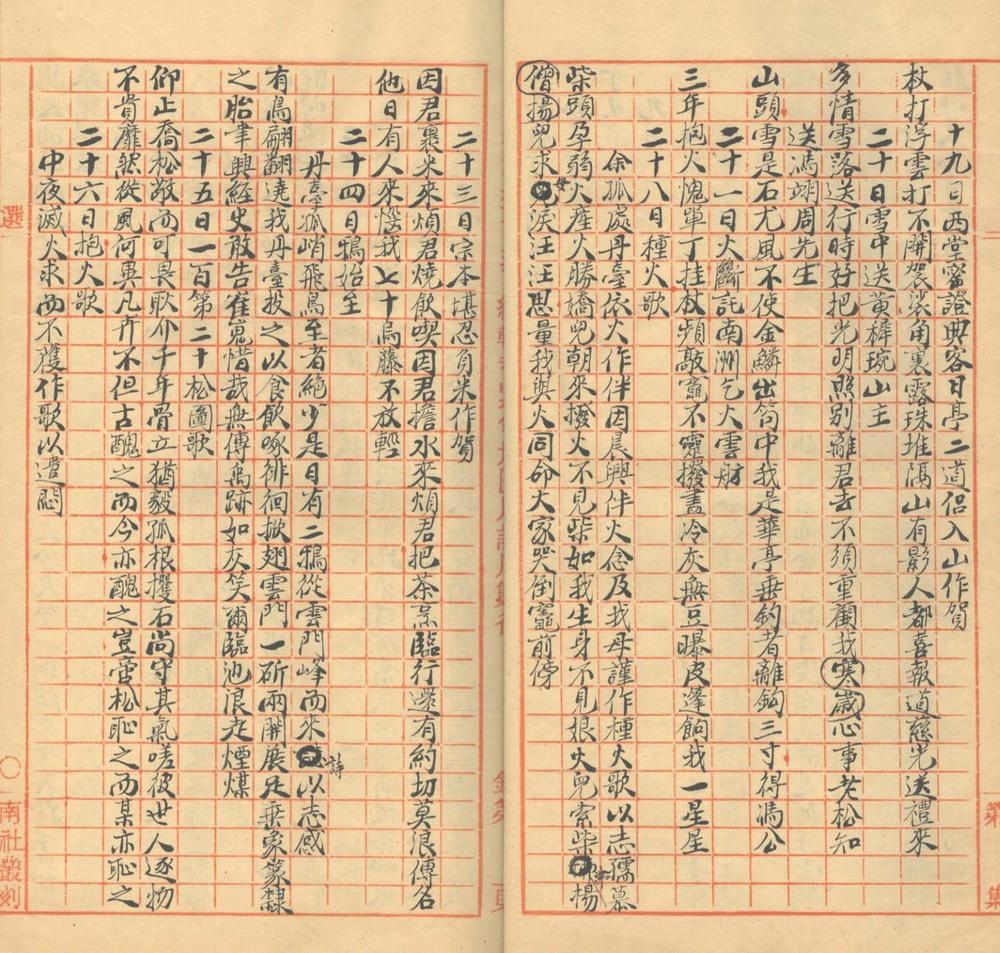 十九日西堂密證典客日亭二道侶入山作賀
杖打浮雲打不開袈裟角裏露珠堆隔山有影人都喜報道慈光送禮來
二十日雪中送黃檗琬山主
多情雪落送行時好把光明照別離君去不須重顧我寒歲心事老松知
送馮翊周先生
山頭雪是石尤風不使金鱗出笱中我是華亭垂釣者離鈎三寸得馮公
二十一日火斷託南洲乞火雲舫
三年抱火愧單丁挂杖頻敲竈不靈撥盡冷灰無豆曝皮逢餉我一星星
二十八日種火歌
余孤處丹臺依火作伴因晨興伴火念及我母謹作種火歌以志孺慕
柴頭孕弱火產火勝嬌兒朝來撥火不見柴如我生身不見娘火兒索柴揚
僧揚兒求母淚汪汪思量我與火同命大家哭倒竈前傍
第
集
二十三日宗本堪忍負米作賀
因君裹米來煩君燒飲喫因君擔水來煩君把茶烹臨行還有約切莫浪傳名
他日有人來惱我七十烏藤不放輕
二十四日鴉始至
丹臺孤峭飛鳥至者絕少是日有二鴉從雲門峰而來詩以志感
有鳥翩翩遶我丹臺投之以食飲啄徘徊掀翅雲門一斫兩開展足乘象篆隸
之胎聿興經史敢告崔嵬惜哉無傳鳥跡如灰笑爾臨池浪走煙煤
二十五日一百第二十松圖歌
仰止喬松敬而可畏耿介千年骨立猶毅孤根攫石尚守其氣嗟彼世人逐物
不貴靡然從風何異凡卉不但古醜之而今亦醜之豈啻松恥之而某亦恥之
二十六日抱火歌
中夜滅火求而不獲作歌以遣悶
選
○
南社叢刻